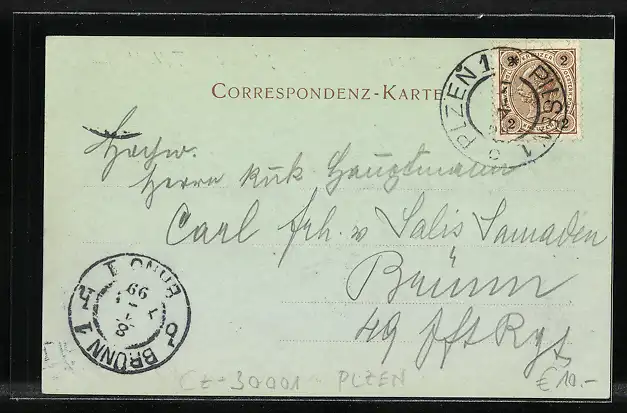 CORRESPONDENZ-KARTE
PLZEN 1 PILSEN 1
2 2
2 2
Hochw.
Herrn kuk Hauptmann
Carl Frh. v Salis Samaden
Brünn
49 Jft Rgt
BRÜNN 1 BRNO 1
99
CZ-30001 PLZEN
€10.-